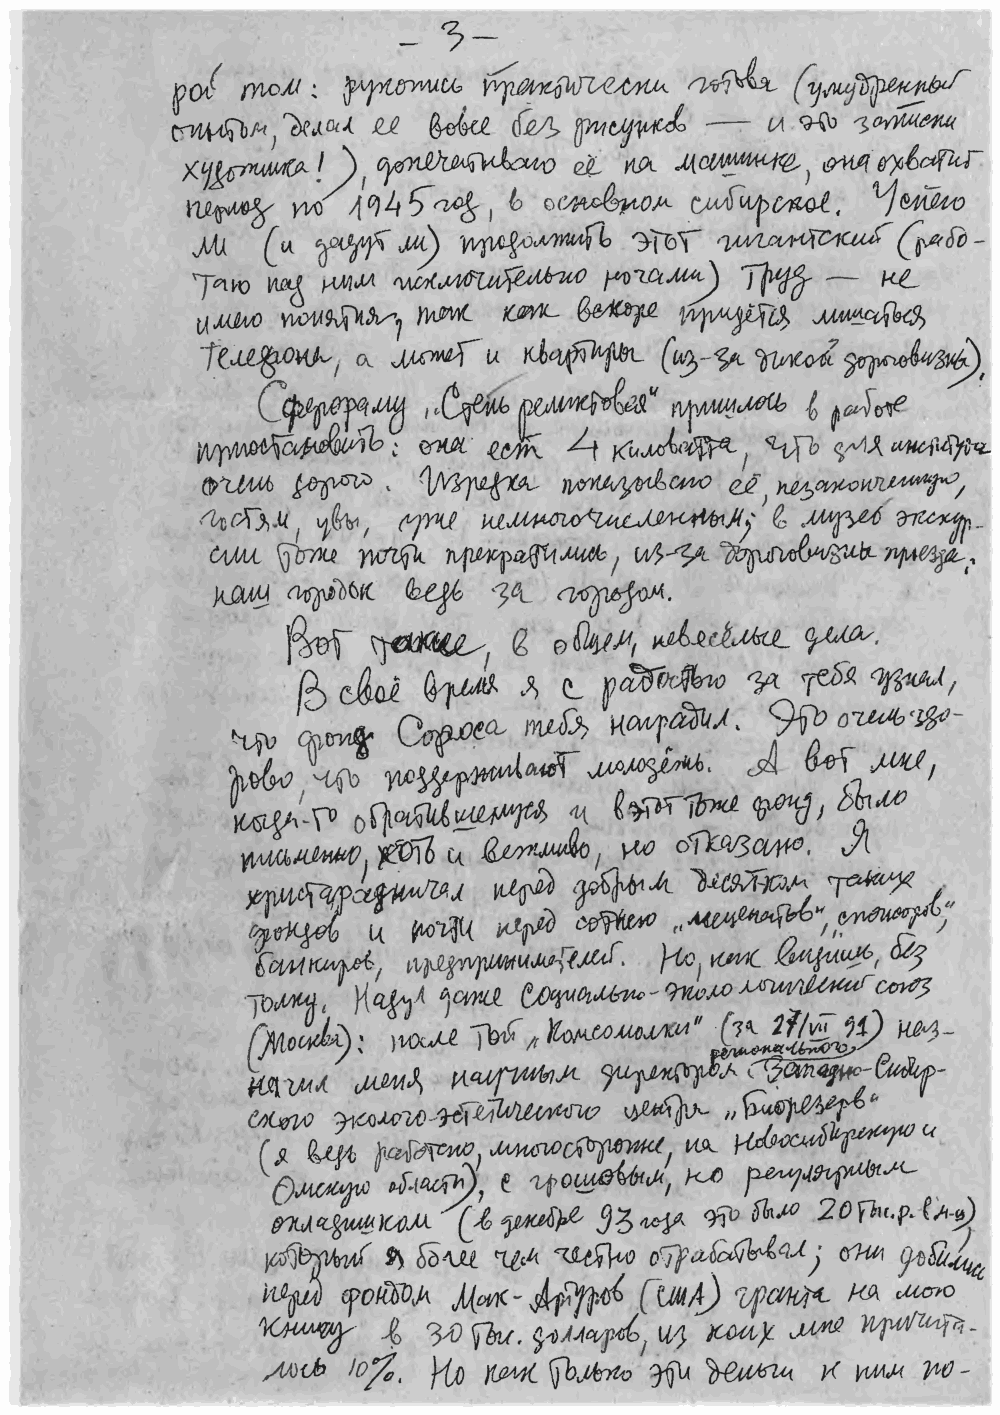 – 3 –
рой том: рукопись практически готова (умудренный
опытом, делал её вовсе без рисунков — и это записки
художника!), допечатываю её на машинке, она охватит
период по 1945 год, в основном сибирское. Успею
ли (и дадут ли) продолжить этот гигантский (рабо-
таю над ним исключительно ночами) труд — не
имею понятия, так как вскоре придётся лишаться
телефона, а может и квартиры (из-за дикой дороговизны).
Сферораму „Степь реликтовая“ пришлось в работе
приостановить: она ест 4 киловатта, что для института
очень дорого. Изредка показываю её, незаконченную,
гостям, увы, уже немногочисленным; в музей экскур-
сии тоже почти прекратились, из-за дороговизны проезда;
наш городок ведь за городом.
Вот такие, в общем, невесёлые дела.
В своё время я с радостью за тебя узнал,
что фонд Сороса тебя наградил. Это очень здо-
рово, что поддерживают молодёжь. А вот мне,
когда-то обратившемуся и в этот тоже фонд, было
письменно, хоть и вежливо, но отказано. Я
христарадничал перед добрым десятком таких
фондов и почти перед сотнею „меценатов“, „спонсоров“,
банкиров, предпринимателей. Но, как видишь, без
толку. Надул даже Социально-экологический союз
(Москва): после той „Комсомолки“ (за 27/VII 91) наз-
начил меня научным директором регионального Западно-Сибир-
ского эколого-эстетического центра „Биорезерв“
(я ведь работаю, многосторонне, на Новосибирскую и
Омскую области), с грошовым, но регулярным
окладишком (в декабре 93 года это было 20 тыс. р. в м-ц),
который я более чем честно отрабатывал; они добились
перед фондом Мак-Артуров (США) гранта на мою
книгу в 30 тыс. долларов, из коих мне причита-
лось 10%. Но как только эти деньги к ним по-